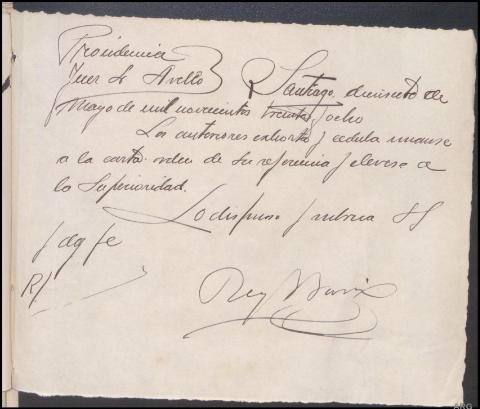 Providencia
Juez Sr Avello } Santiago, dieciseis de
Mayo de mil novecientos treinta y ocho
Los anteriores exhorto y cédula unanse
a la carta-orden de su referencia y elevese a
la Superioridad.
Lo dispuso y rubrica SS
y doy fe
R/
Rey
ARG